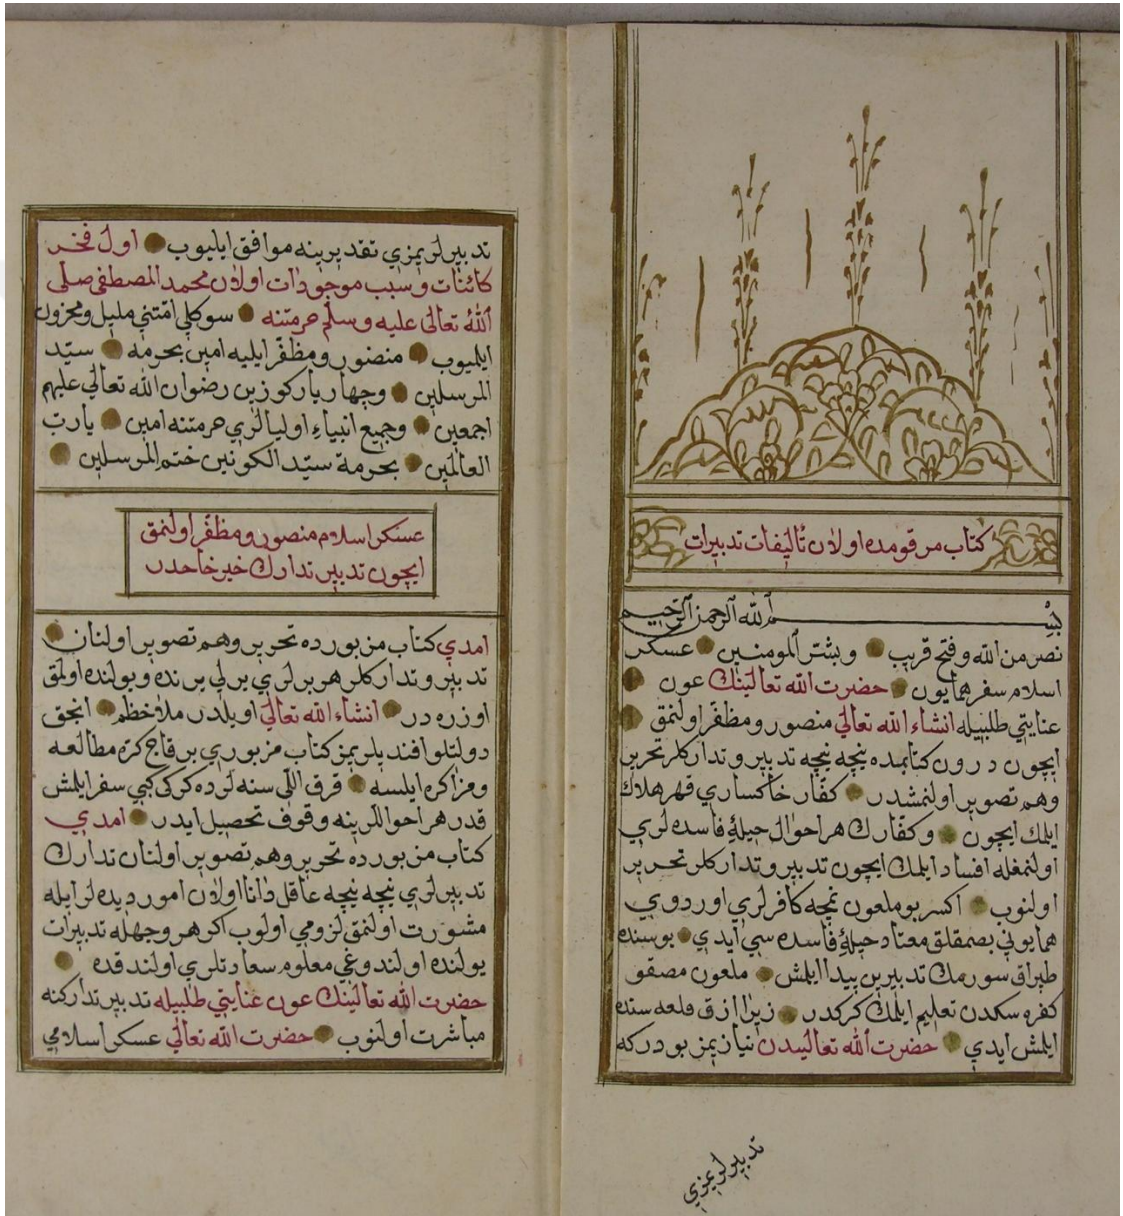 كتاب مرقومده اولان تأليفات تدبيرات
بسم الله الرحمن الرحيم
نصر من الله وفتح قريب وبشر المومنين عسكر
اسلام سفر همايون حضرت الله تعالينك عون
عنايتي طلبيله انشاء الله تعالي منصور ومظفر اولنمق
ايچون درون كتابمده نيچه نيچه تدبير وتداركلر تحرير
وهم تصوير اولنمشدر كفار خاكساري قهر هلاك
ايلمك ايچون وكفارك هر احوال حيلهٔ فاسده لري
اولنمغله افساد ايلمك ايچون تدبير وتداركلر تحرير
اولنوب اكسر بو ملعون نمچه كافرلري اوردوي
همايوني بصمقلق معتاد حيلهٔ فاسده سي ايدي بوسنده
طپراق سورمك تدبيرين بيدا ايلمش ملعون مصقو
كفره سكدن تعليم ايلمك كركدر زيرا ازق قلعه سنده
ايلمش ايدي حضرت الله تعاليدن نيازيمز بودركه
تدبيرلريمزي
تدبيرلريمزي تقديرينه موافق ايليوب اول فخر
كائنات وسبب موجودات اولان محمد المصطفى صلى
الله تعالى عليه وسلم حرمتنه سوكلي امتني مليل ومحزون
ايلميوب منصور ومظفر ايليه امين بحرمه سيد
المرسلين وچهار يار كوزين رضوان الله تعالي عليهم
اجمعين وجميع انبياء اوليالري حرمتنه امين يارب
العالمين بحرمة سيد الكونين ختم المرسلين
عسكر اسلام منصور ومظفر اولنمق
ايچون تدبير تدارك خيرخاحدر
امدي كتاب مزبورده تحرير وهم تصوير اولنان
تدبير وتداركلر هر برلري برلي برنده ويولنده اولمق
اوزره در انشاء الله تعالي اويلدر ملاحظم انجق
دولتلو افنديلريمز كتاب مزبوري بر قاچ كره مطالعه
ومزاكره ايلسه قرق اللي سنه لرده كركي كبي سفر ايلمش
قدر هر احواللرينه وقوف تحصيل ايدر امدي
كتاب مزبورده تحرير وهم تصوير اولنان تدارك
تدبيرلري نيچه نيچه عاقل دانا اولان امور ديده لر ايله
مشورت اولنمق لزومي اولوب اكر هر وجهله تدبيرات
يولنده اولندوغي معلوم سعادتلري اولندقده
حضرت الله تعالينك عون عنايتي طلبيله تدبير تداركنه
مباشرت اولنوب حضرت الله تعالي عسكر اسلامي